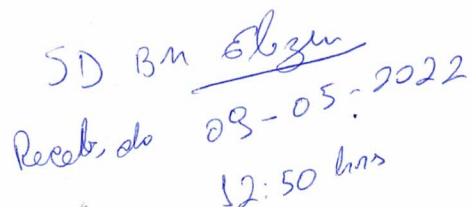 SD BM Elozeu
Recebido 09-05-2022
12:50 hrs